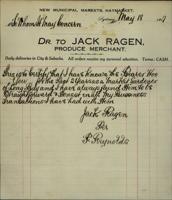 NEW MUNICIPAL MARKETS, HAYMARKET.
Sydney, May 18 19
To Whom It May Concern
DR. TO JACK RAGEN,
PRODUCE MERCHANT.
Daily deliveries to City & Suburbs. All orders receive my personal attention. Terms: CASH.
This is to Certify that I have Known the Bearer Hoo
for the Past 2 years as a Market Gardener
and I have always found Him to be
Straightforward & Honest in all My Business
Transactions I have had with Him
Jack Ragen
Per
P Reynolds